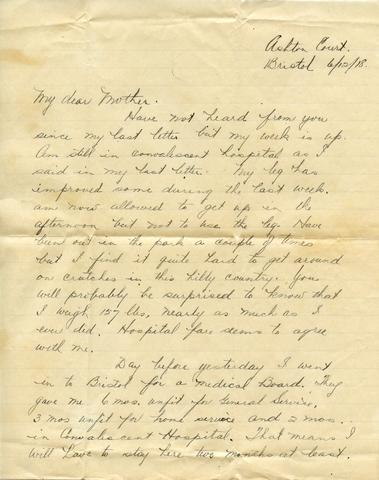 Ashton Court.
Bristol 6/12/18.
My dear Mother.
Have not heard from you
since my last letter but my week is up.
Am still in convalescent hospital as I
said in my last letter. My leg has
improved some during the last week.
am now allowed to get up in the
afternoon but not to use the leg. Have
been out in the park a couple of times
but I find it quite hard to get around
on crutches in this hilly country. You
will probably be surprised to know that
I weigh 157 lbs, nearly as much as I
ever did. Hospital fare seems to agree
with me.
Day before yesterday I went
in to Bristol for a Medical Board. They
gave me 6 mos. unfit for General Service,
3 mos unfit for home service and 2 mos..
in Convalescent Hospital. That means I
will have to stay here two months at least.